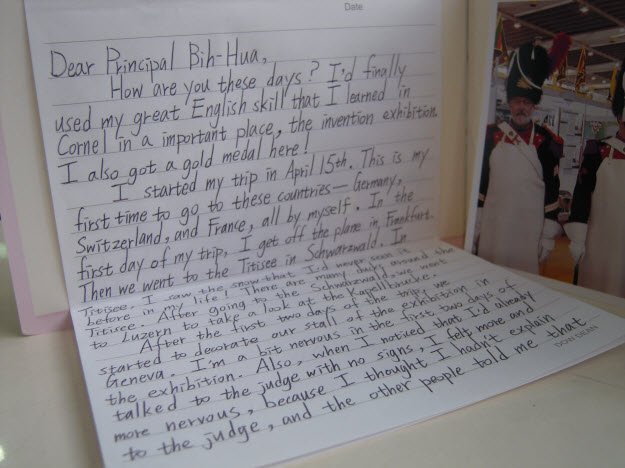 Date
Dear Principal Bih-Hua,
How are you these days? I'd finally
used my great English skill that I learned in
Cornel in a important place, the invention exhibition.
I also got a gold medal here!
I started my trip in April 15th. This is my
first time to go to these countries—Germany,
Switzerland, and France, all by myself. In the
first day of my trip, I get off the plane in Frankfurt.
Then we went to the Titisee in Schwarzwald. In
Titisee, I saw the snow that I'd never seen it
before in my life. There are many ducks around the
Titisee. After going to the Schwarzwald, we went
to Luzern to take a look at the Kapellbrücke.
After the first two days of the trip, we
started to decorate our stall of the exhibition in
Geneva. I'm a bit nervous in the first two days of
the exhibition. Also, when I noticed that I'd already
talked to the judge with no signs, I felt more and
more nervous, because I thought I hadn't explain
to the judge, and the other people told me that